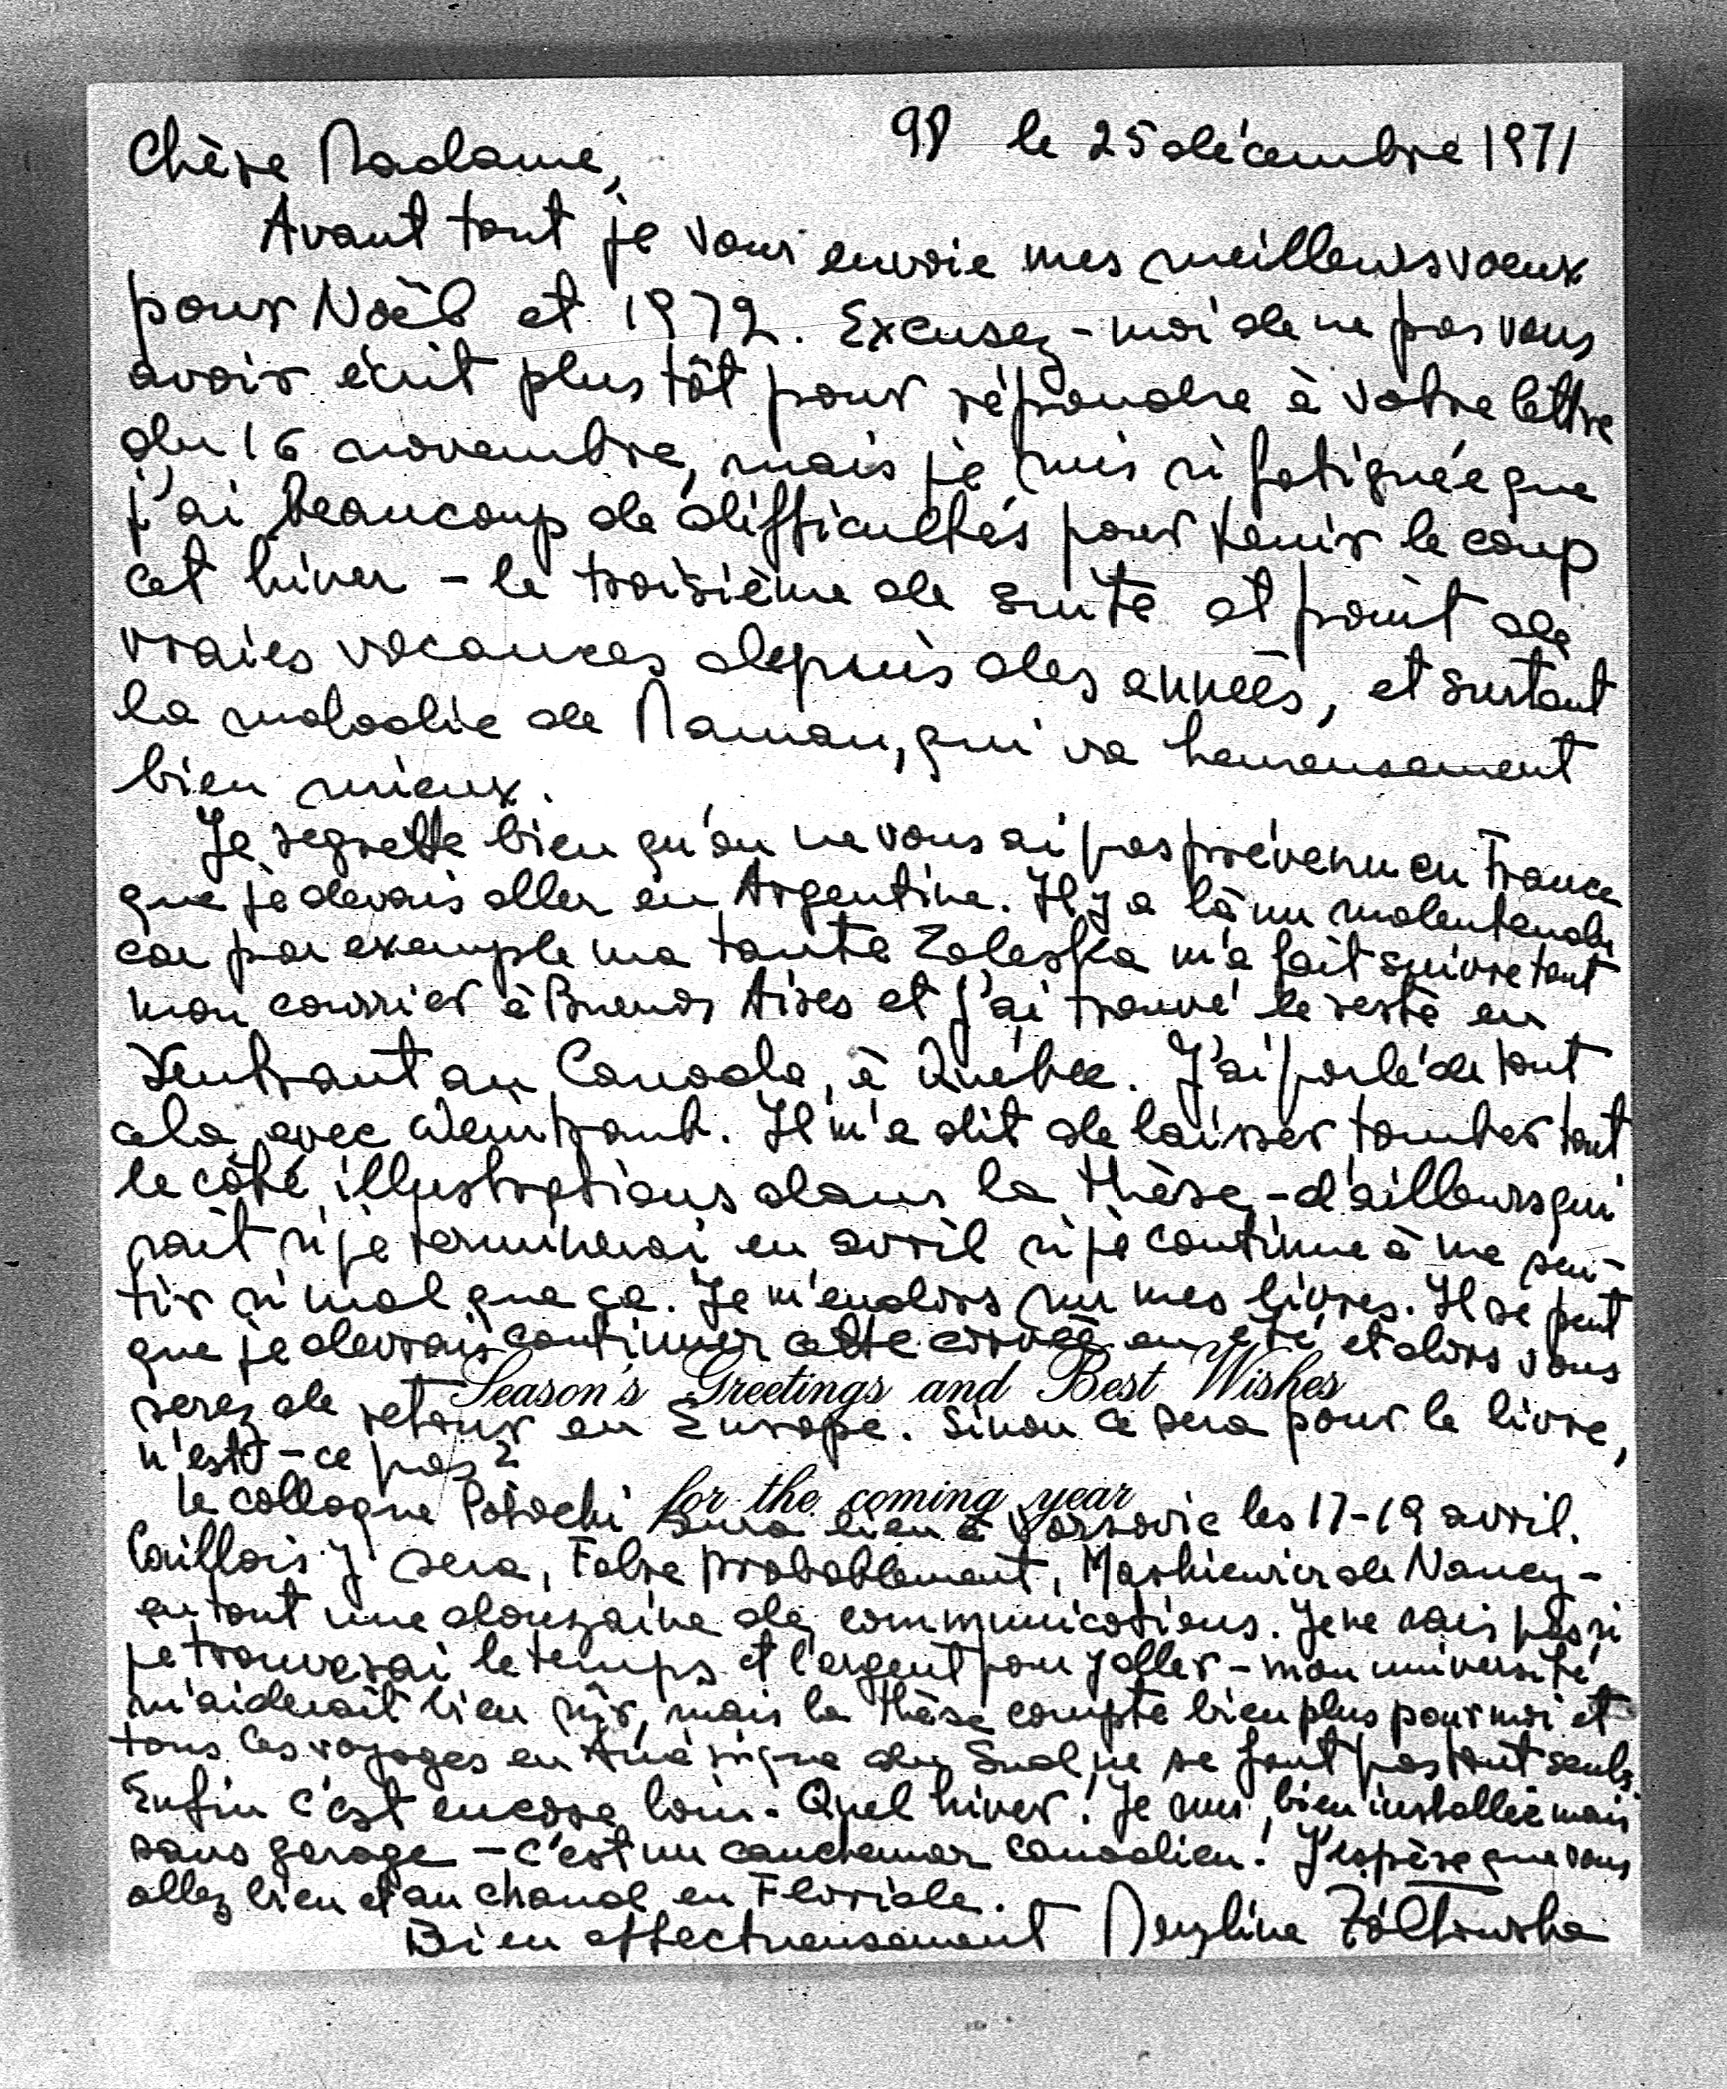 98 le 25 décembre 1971
Chère Madame,
Avant tout je vous envoie mes meilleurs voeux
pour Noël et 1972. Excusez-moi de ne pas vous
avoir écrit plus tôt pour répondre à votre lettre
du 16 novembre, mais je suis si fatiguée que
j'ai beaucoup de difficultés pour tenir le coup
cet hiver - le troisième de suite et point de
vraies vacances depuis des années, et surtout
la maladie de Maman, qui va heureusement
bien mieux.
Je regrette bien qu'on ne vous ai pas prévenu en France
que je devais aller en Argentine. Il y a là un malentendu
car par exemple ma tante Zaleska m'a fait suivre tout
mon courrier à Buenos Aires et j'ai trouvé le reste en
rentrant au Canada, à Québec. J'ai parlé de tout
cela avec Weintraub. Il m'a dit de laisser tomber tout
le côté illustrations dans la thèse, - d'ailleurs qui
sait si je terminerai en avril si je continue à me sen-
tir si mal que ça. Je m'endors sur mes livres. Il se peut
que je devrais continuer cette corvée en été et alors vous
Season's Greetings and Best Wishes
serez de retour en Europe. Sinon ce sera pour le livre,
n'est-ce pas?
for the coming year
Le colloque Potocki aura lieu à Varsovie les 17-19 avril.
Caillois y sera, Fabre probablement, de Nancy -
en tout une douzaine de communications. Je ne sais pas si
je trouverai le temps et l'argent pour y aller - mon université
m'aiderait bien sûr, mais la thèse compte bien plus pour moi et
tous les voyages en Amérique du Sud ne se font pas tout seuls.
Enfin c'est encore loin. Quel hiver! Je suis bien installée mais
sans garage - c'est un cauchemar canadien! J'espère que vous
allez bien et au chaud en Floride.
Bien affectueusement Żółtowska